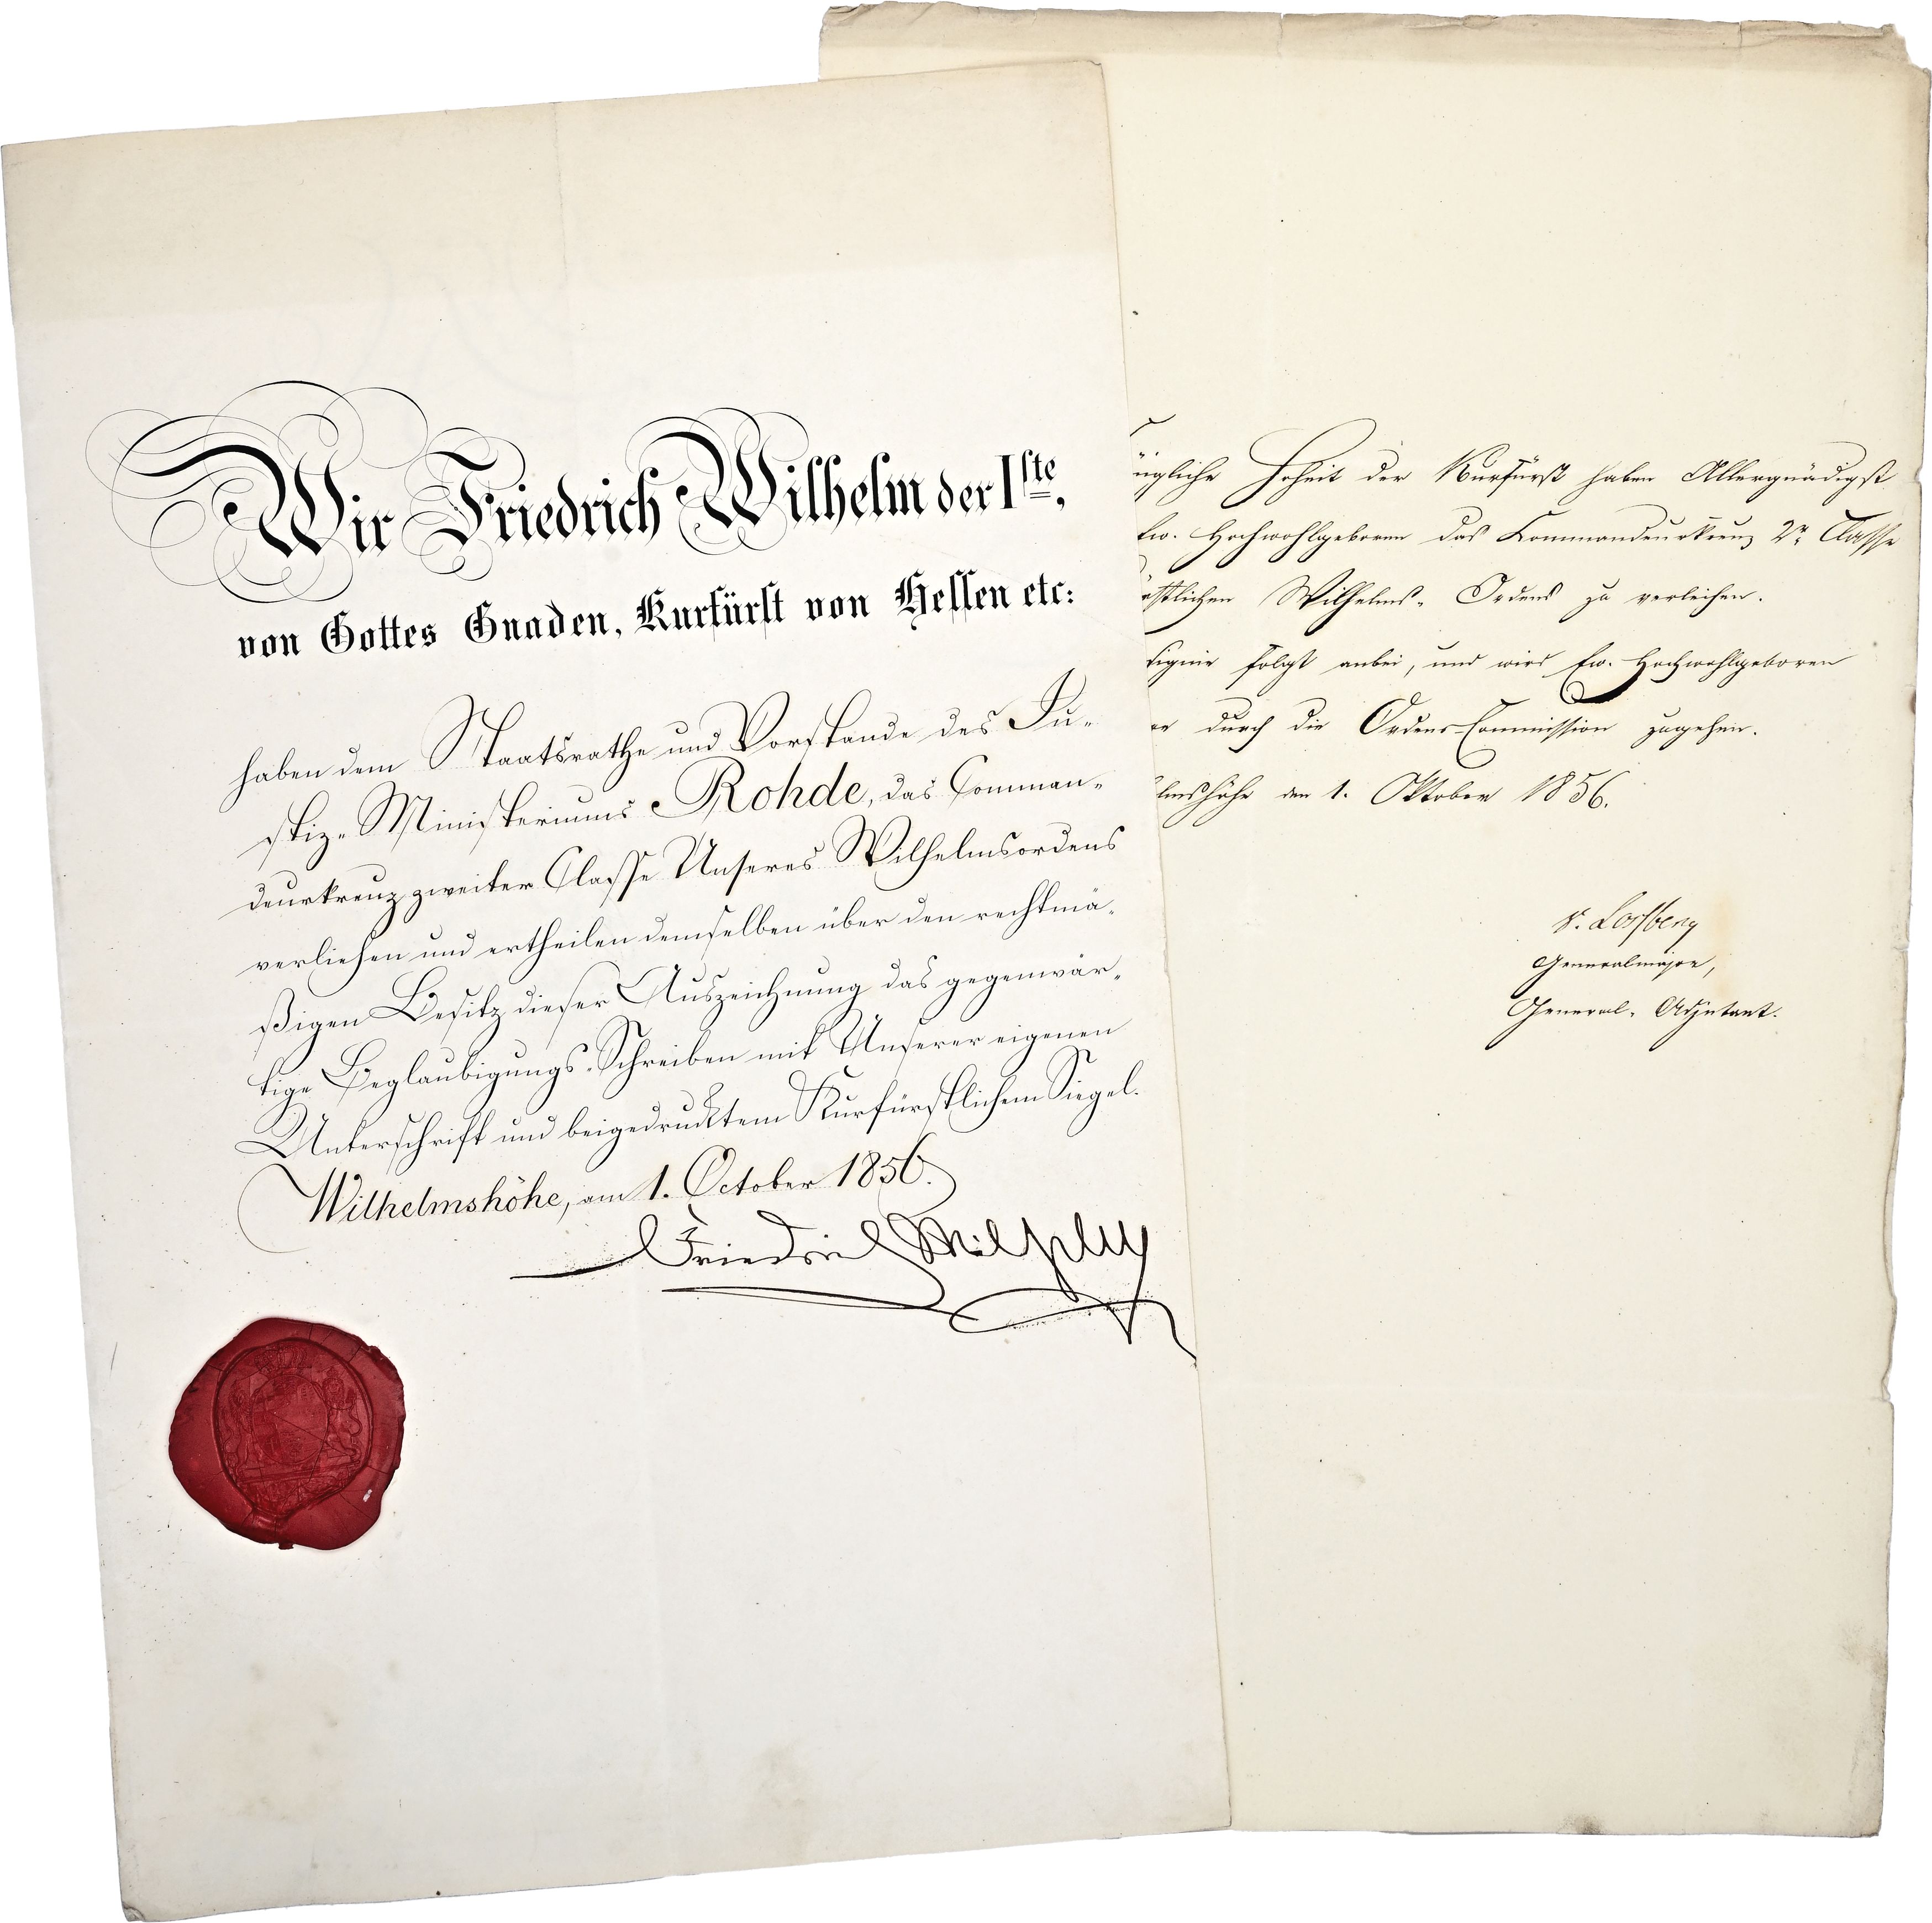 Wir Friedrich Wilhelm der Iste,
von Gottes Gnaden, Kurfürst von Hessen etc:
haben dem Staatsrathe und Vorstande des Ju-
stiz-Ministeriums Rohde, das Comman-
deurkreuz zweiter Classe Unseres Wilhelmsordens
verliehen und ertheilen demselben über den rechtmä-
ßigen Besitz dieser Auszeichnung das gegenwär-
tige Beglaubigungs-Schreiben mit Unserer eigenen
Unterschrift und beigedrucktem Kurfürstlichem Siegel.
Wilhelmshöhe, am 1. October 1856.
Friedrich Wilhelm
igliche Hoheit der Kurfürst haben Allergnädigst
Ew. Hochwohlgeboren das Kommandeurkreuz 2r Classe
stlichen Wilhelms-Ordens zu verleihen.
signie folgt anbei, und wird Ew. Hochwohlgeboren
durch die Ordens-Commission zugehen.
lmshöhe den 1. Oktober 1856.
v. Loßberg
Generalmajor,
General-Adjutant.